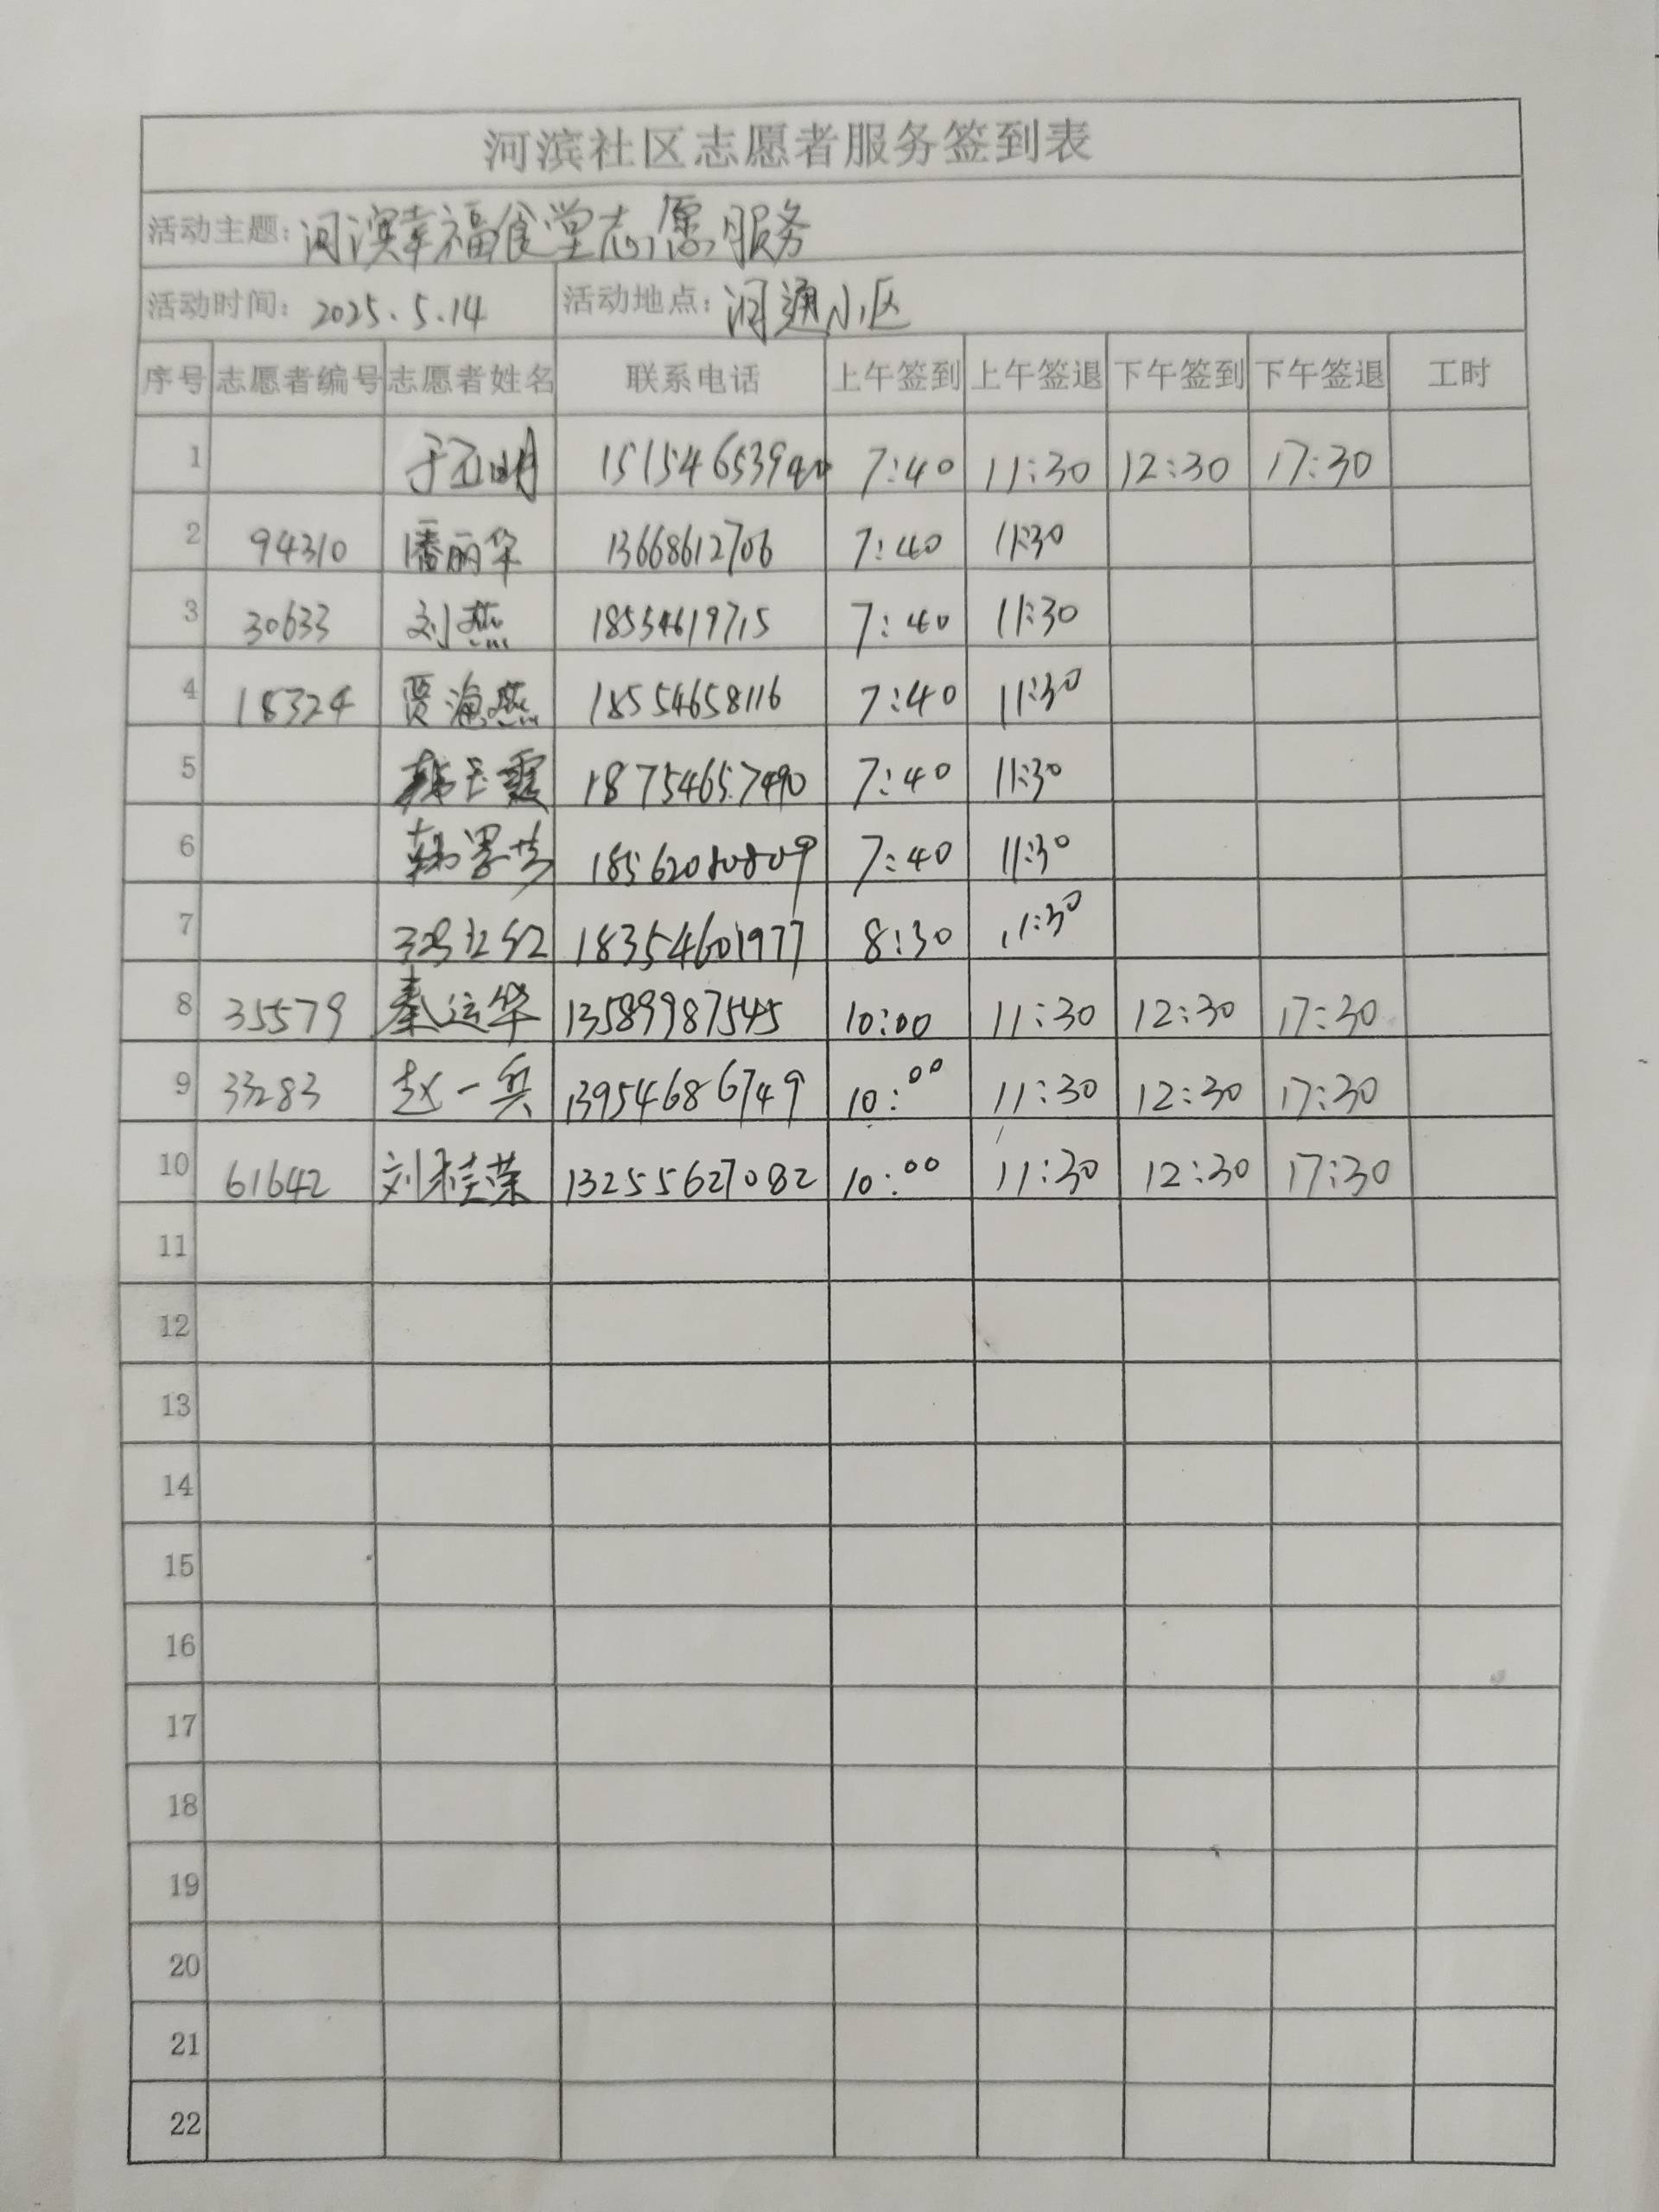 河滨社区志愿者服务签到表
活动主题: 河滨幸福食堂志愿服务
活动时间: 2025.5.14 活动地点: 河通小区
序号 志愿者编号 志愿者姓名 联系电话 上午签到 上午签退 下午签到 下午签退 工时
1 7:40 11:30 12:30 17:30
2 94310 潘丽华 13668612706 7:40 11:30
3 30633 刘燕 18554619715 7:40 11:30
4 18324 贾海燕 18554658116 7:40 11:30
5 韩玉霞 18754657490 7:40 11:30
6 18562080809 7:40 11:30
7 18354601977 8:30 11:30
8 35579 秦运华 13589987545 10:00 11:30 12:30 17:30
9 33283 赵一兵 13954686749 10:00 11:30 12:30 17:30
10 61642 刘桂荣 13255627082 10:00 11:30 12:30 17:30
11
12
13
14
15
16
17
18
19
20
21
22